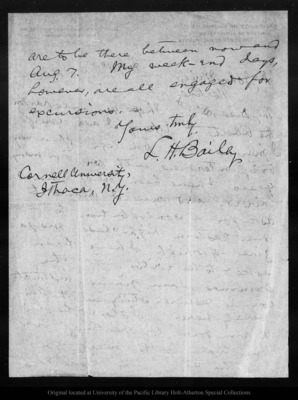 are to be there between now and
Aug. 7. My week-end days,
however, are all engaged for
excursions.
Yours truly
L H Bailey
Cornell University,
Ithaca, N.Y.
Original located at University of the Pacific Library Holt-Atherton Special Collections